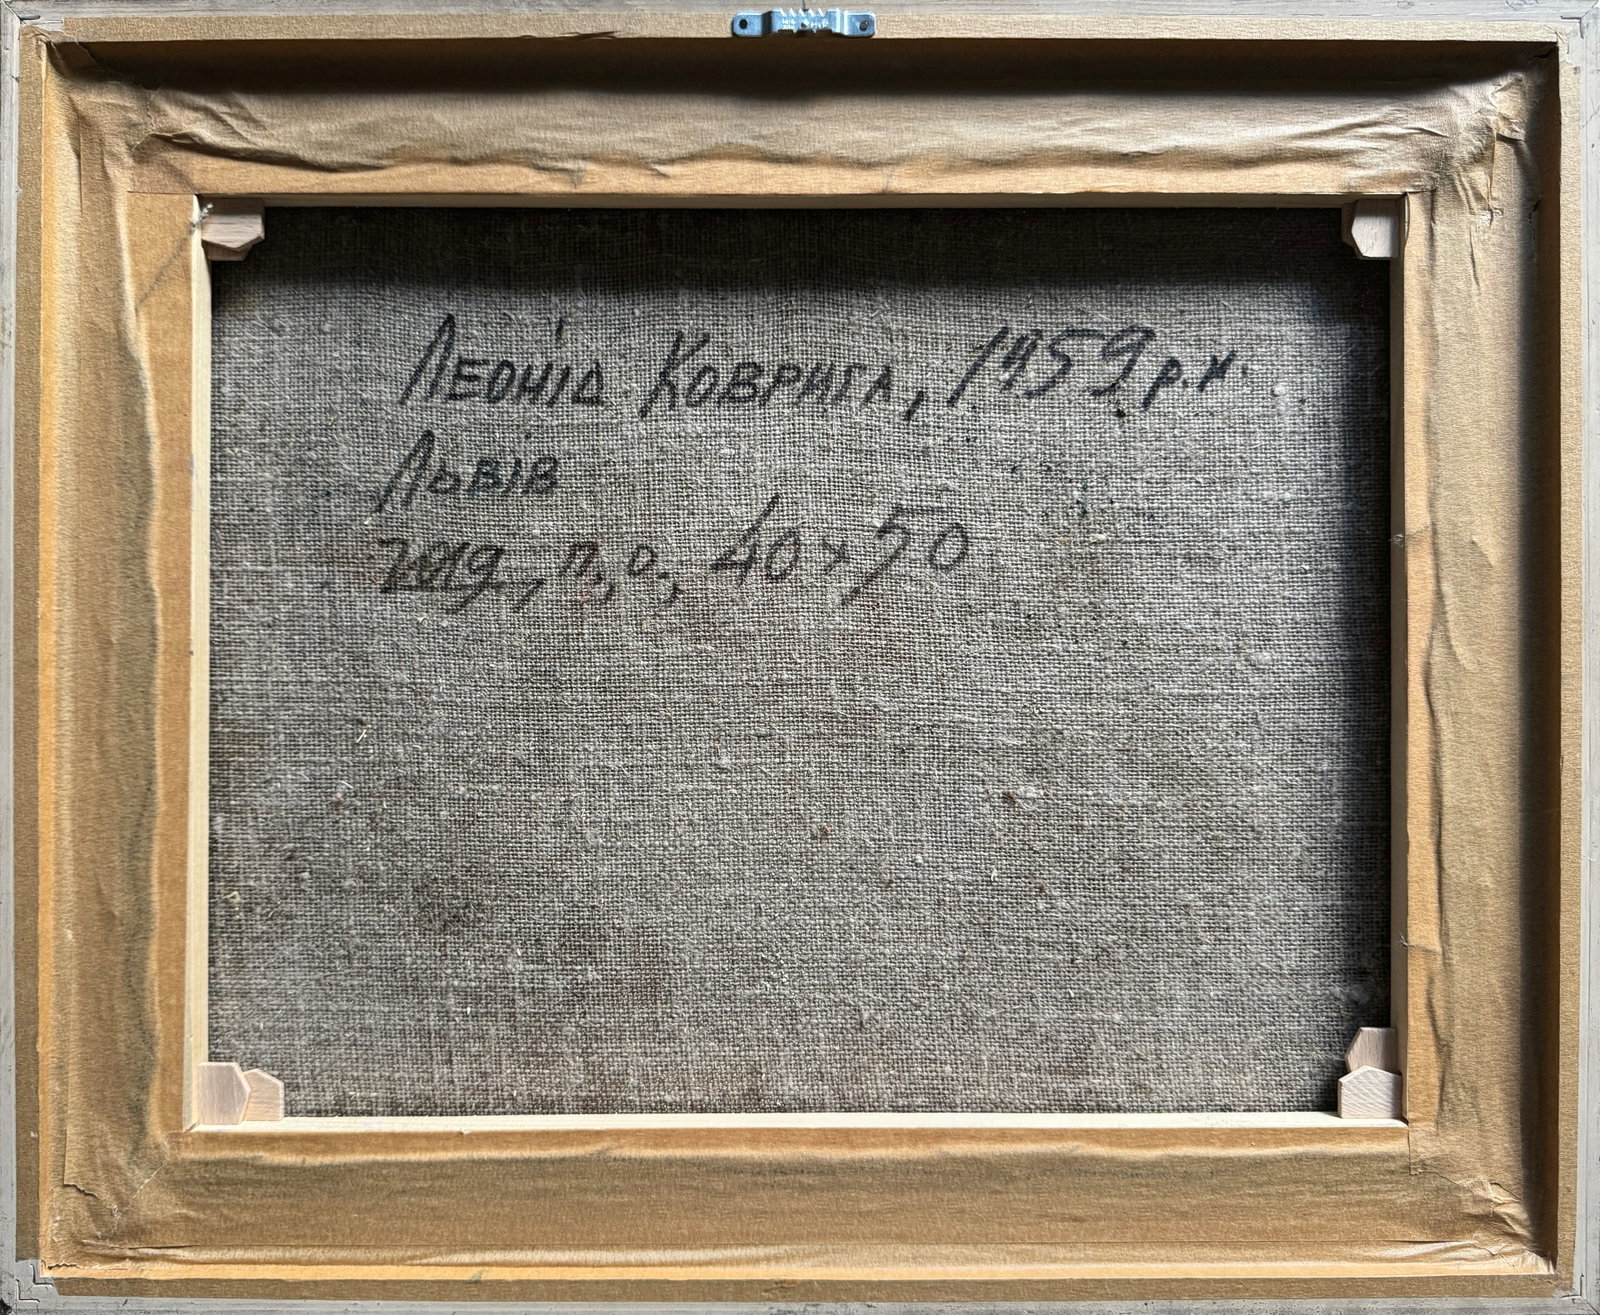 Леонід Коврига, 1959 р.н.
Львів
2019, п,о, 40х50